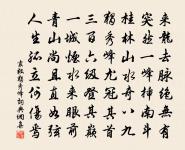 來龍去脈絕無有
突然一峰插南斗
桂林山水奇八九
獨秀峰尤冠其首
三百六級登其巔
一城煙水來眼前
青山尚且直如弦
人生孤立何傷焉
袁枚獨秀峰 詞典網書